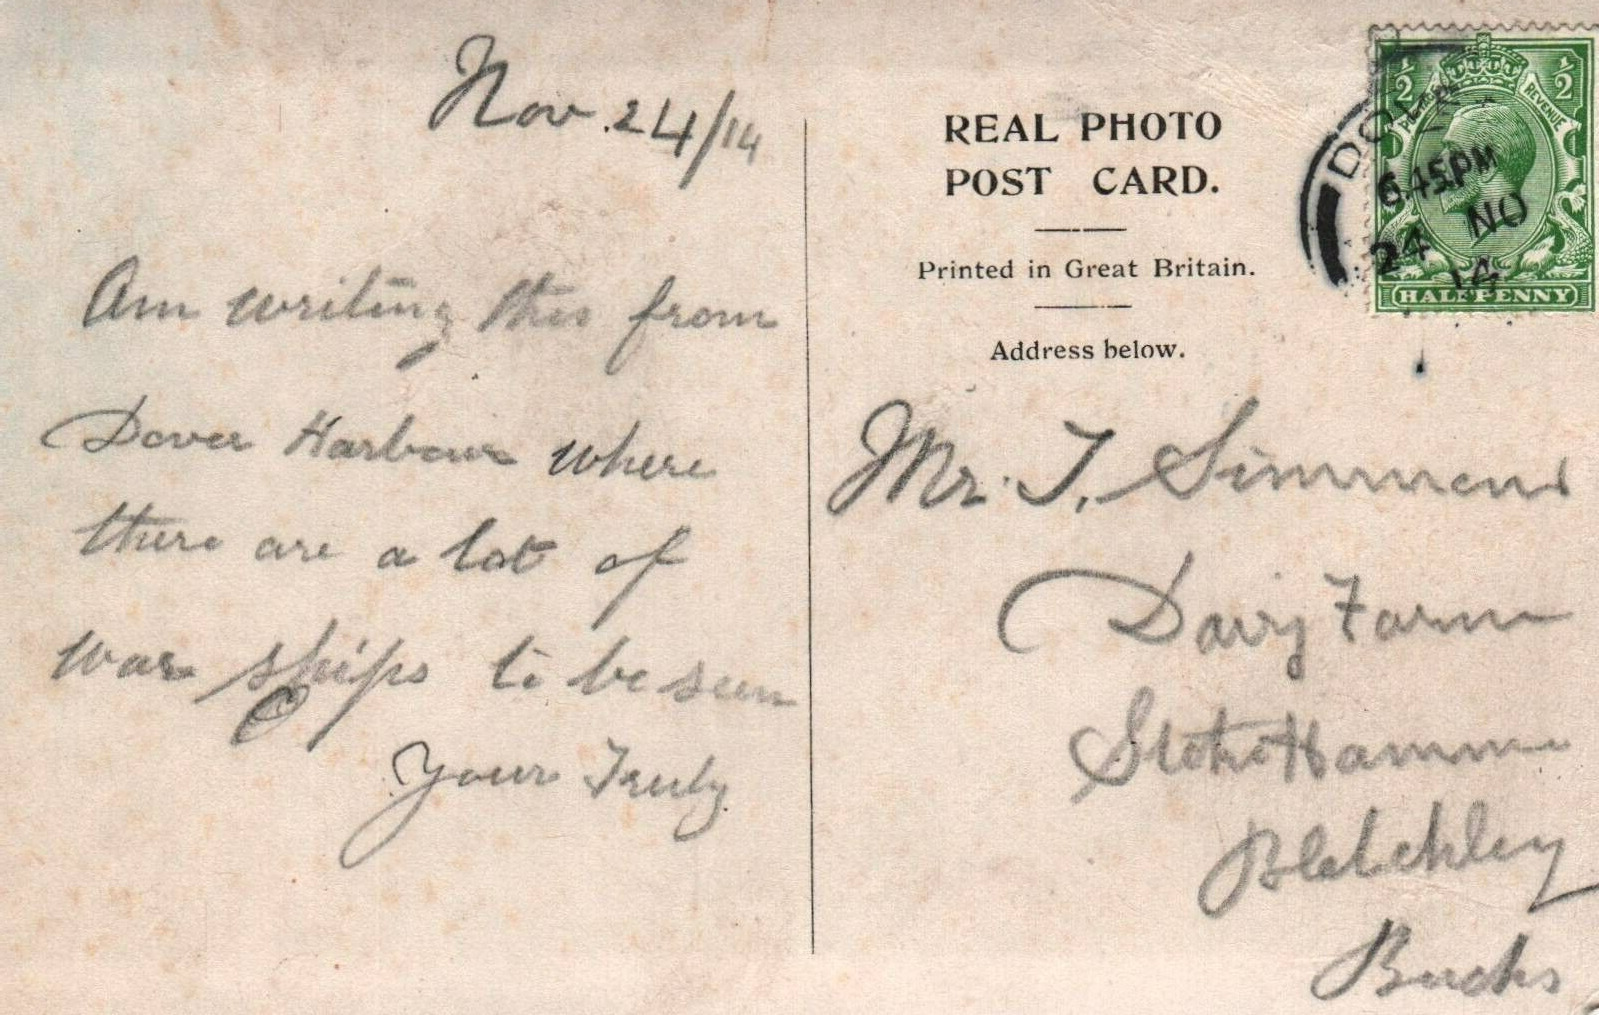 Nov. 24/14
Am writing this from
Dover Harbour where
there are a lot of
war ships to be seen
Yours Truly
REAL PHOTO
POST CARD.
Printed in Great Britain.
Address below.
Mr. T. Simmons
Dairy Farm
Stoke Hammond
Bletchley
Bucks
½ ½
REVENUE
HALFPENNY
DOVER
6.45PM
24 NO
14